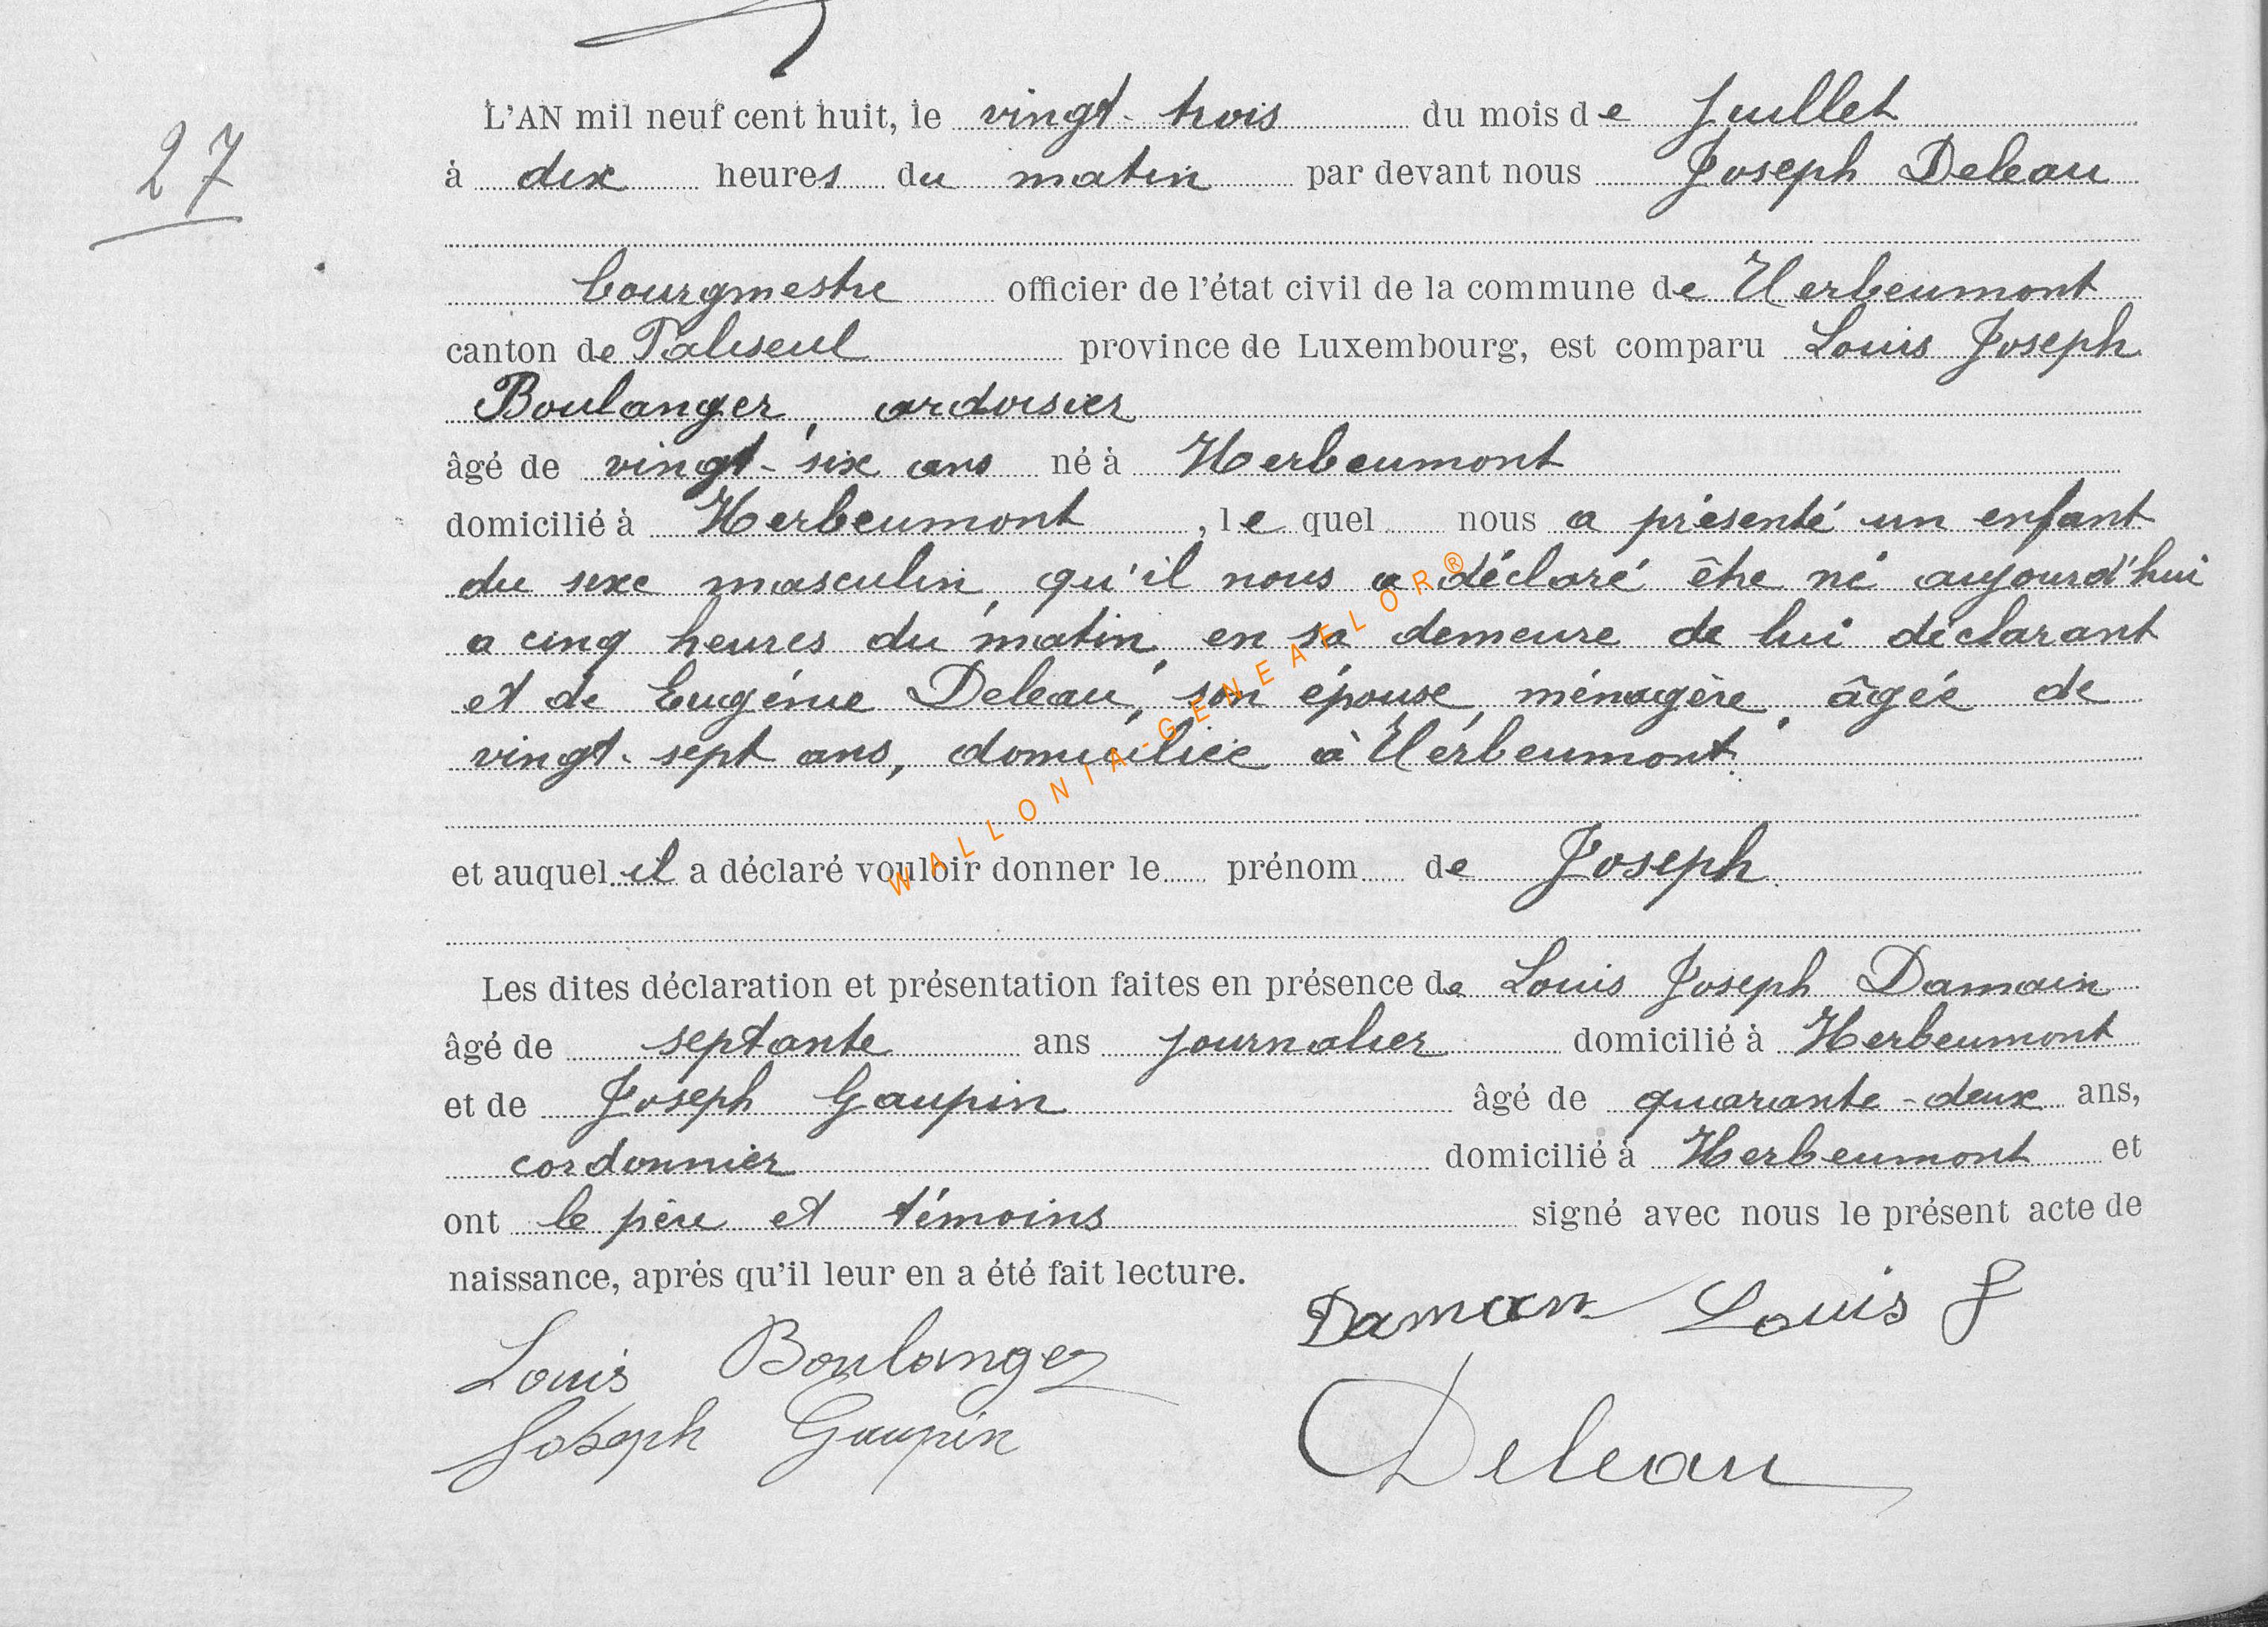 27
L'AN mil neuf cent huit, le vingt-trois du mois de Juillet
à dix heures du matin par devant nous Joseph Deleau
bourgmestre officier de l'état civil de la commune de Herbeumont
canton de Paliseul province de Luxembourg, est comparu Louis Joseph
Boulanger, ardoisier
âgé de vingt-six ans né à Herbeumont
domicilié à Herbeumont, lequel nous a présenté un enfant
du sexe masculin, qu'il nous a déclaré être né aujourd'hui
a cinq heures du matin, en sa demeure de lui déclarant
et de Eugénie Deleau, son épouse, ménagère, âgée de
vingt-sept ans, domiciliée à Herbeumont.
et auquel il a déclaré vouloir donner le prénom de Joseph.
Les dites déclaration et présentation faites en présence de Louis Joseph Damain
âgé de septante ans journalier domicilié à Herbeumont
et de Joseph Gaupin âgé de quarante-deux ans,
cordonnier domicilié à Herbeumont et
ont le père et témoins signé avec nous le présent acte de
naissance, après qu'il leur en a été fait lecture.
Damain Louis J
Louis Boulanger
Joseph Gaupin
Deleau
WALLONIA-GENEALOR®